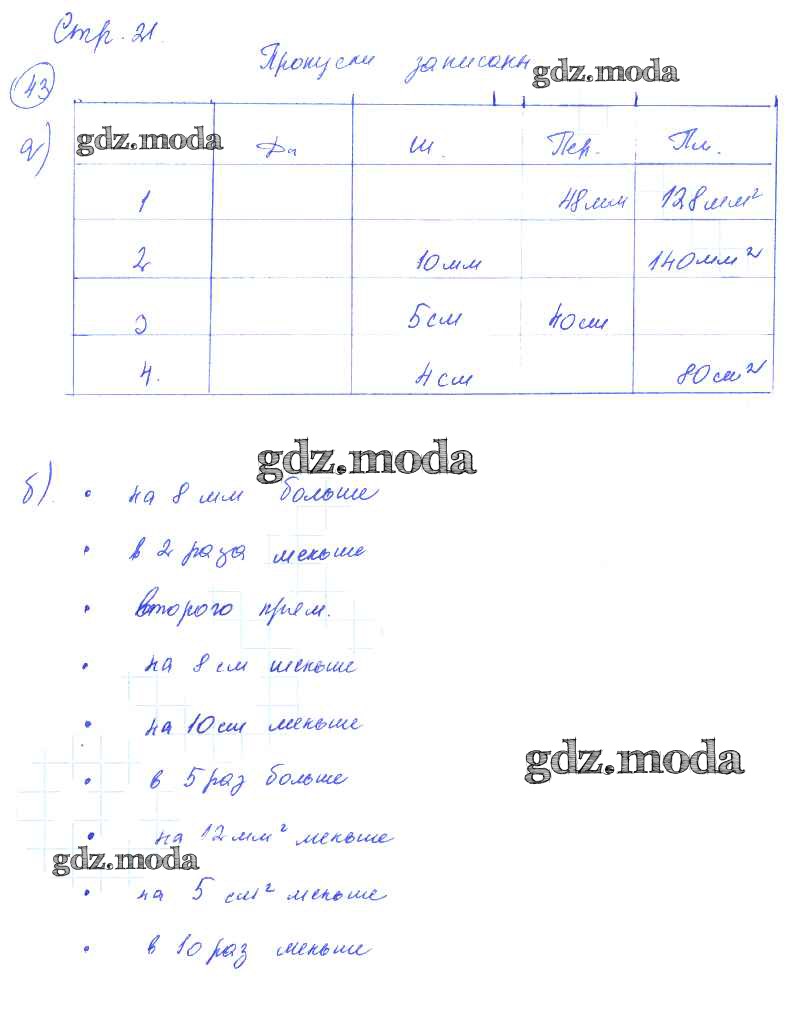 Стр. 21.
Пропуски записаны
gdz.moda
43
а)
gdz.moda Дл Ш. Пер. Пл.
1 48мм 128мм²
2 10мм 140мм²
3 5см 40см
4. 4см 80см²
gdz.moda
б). • на 8 мм больше
• в 2 раза меньше
• второго прям.
• на 8 см меньше
• на 10см меньше
gdz.moda
• в 5 раз больше
• на 12 мм² меньше
gdz.moda
• на 5 см² меньше
• в 10 раз меньше